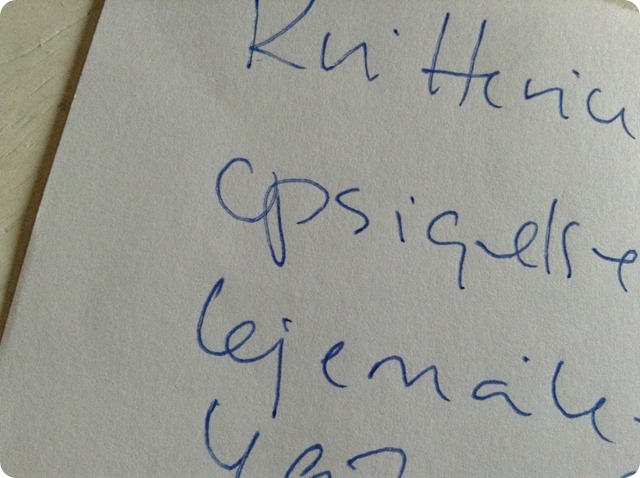 Kvitteria
opsigelse
lejemål